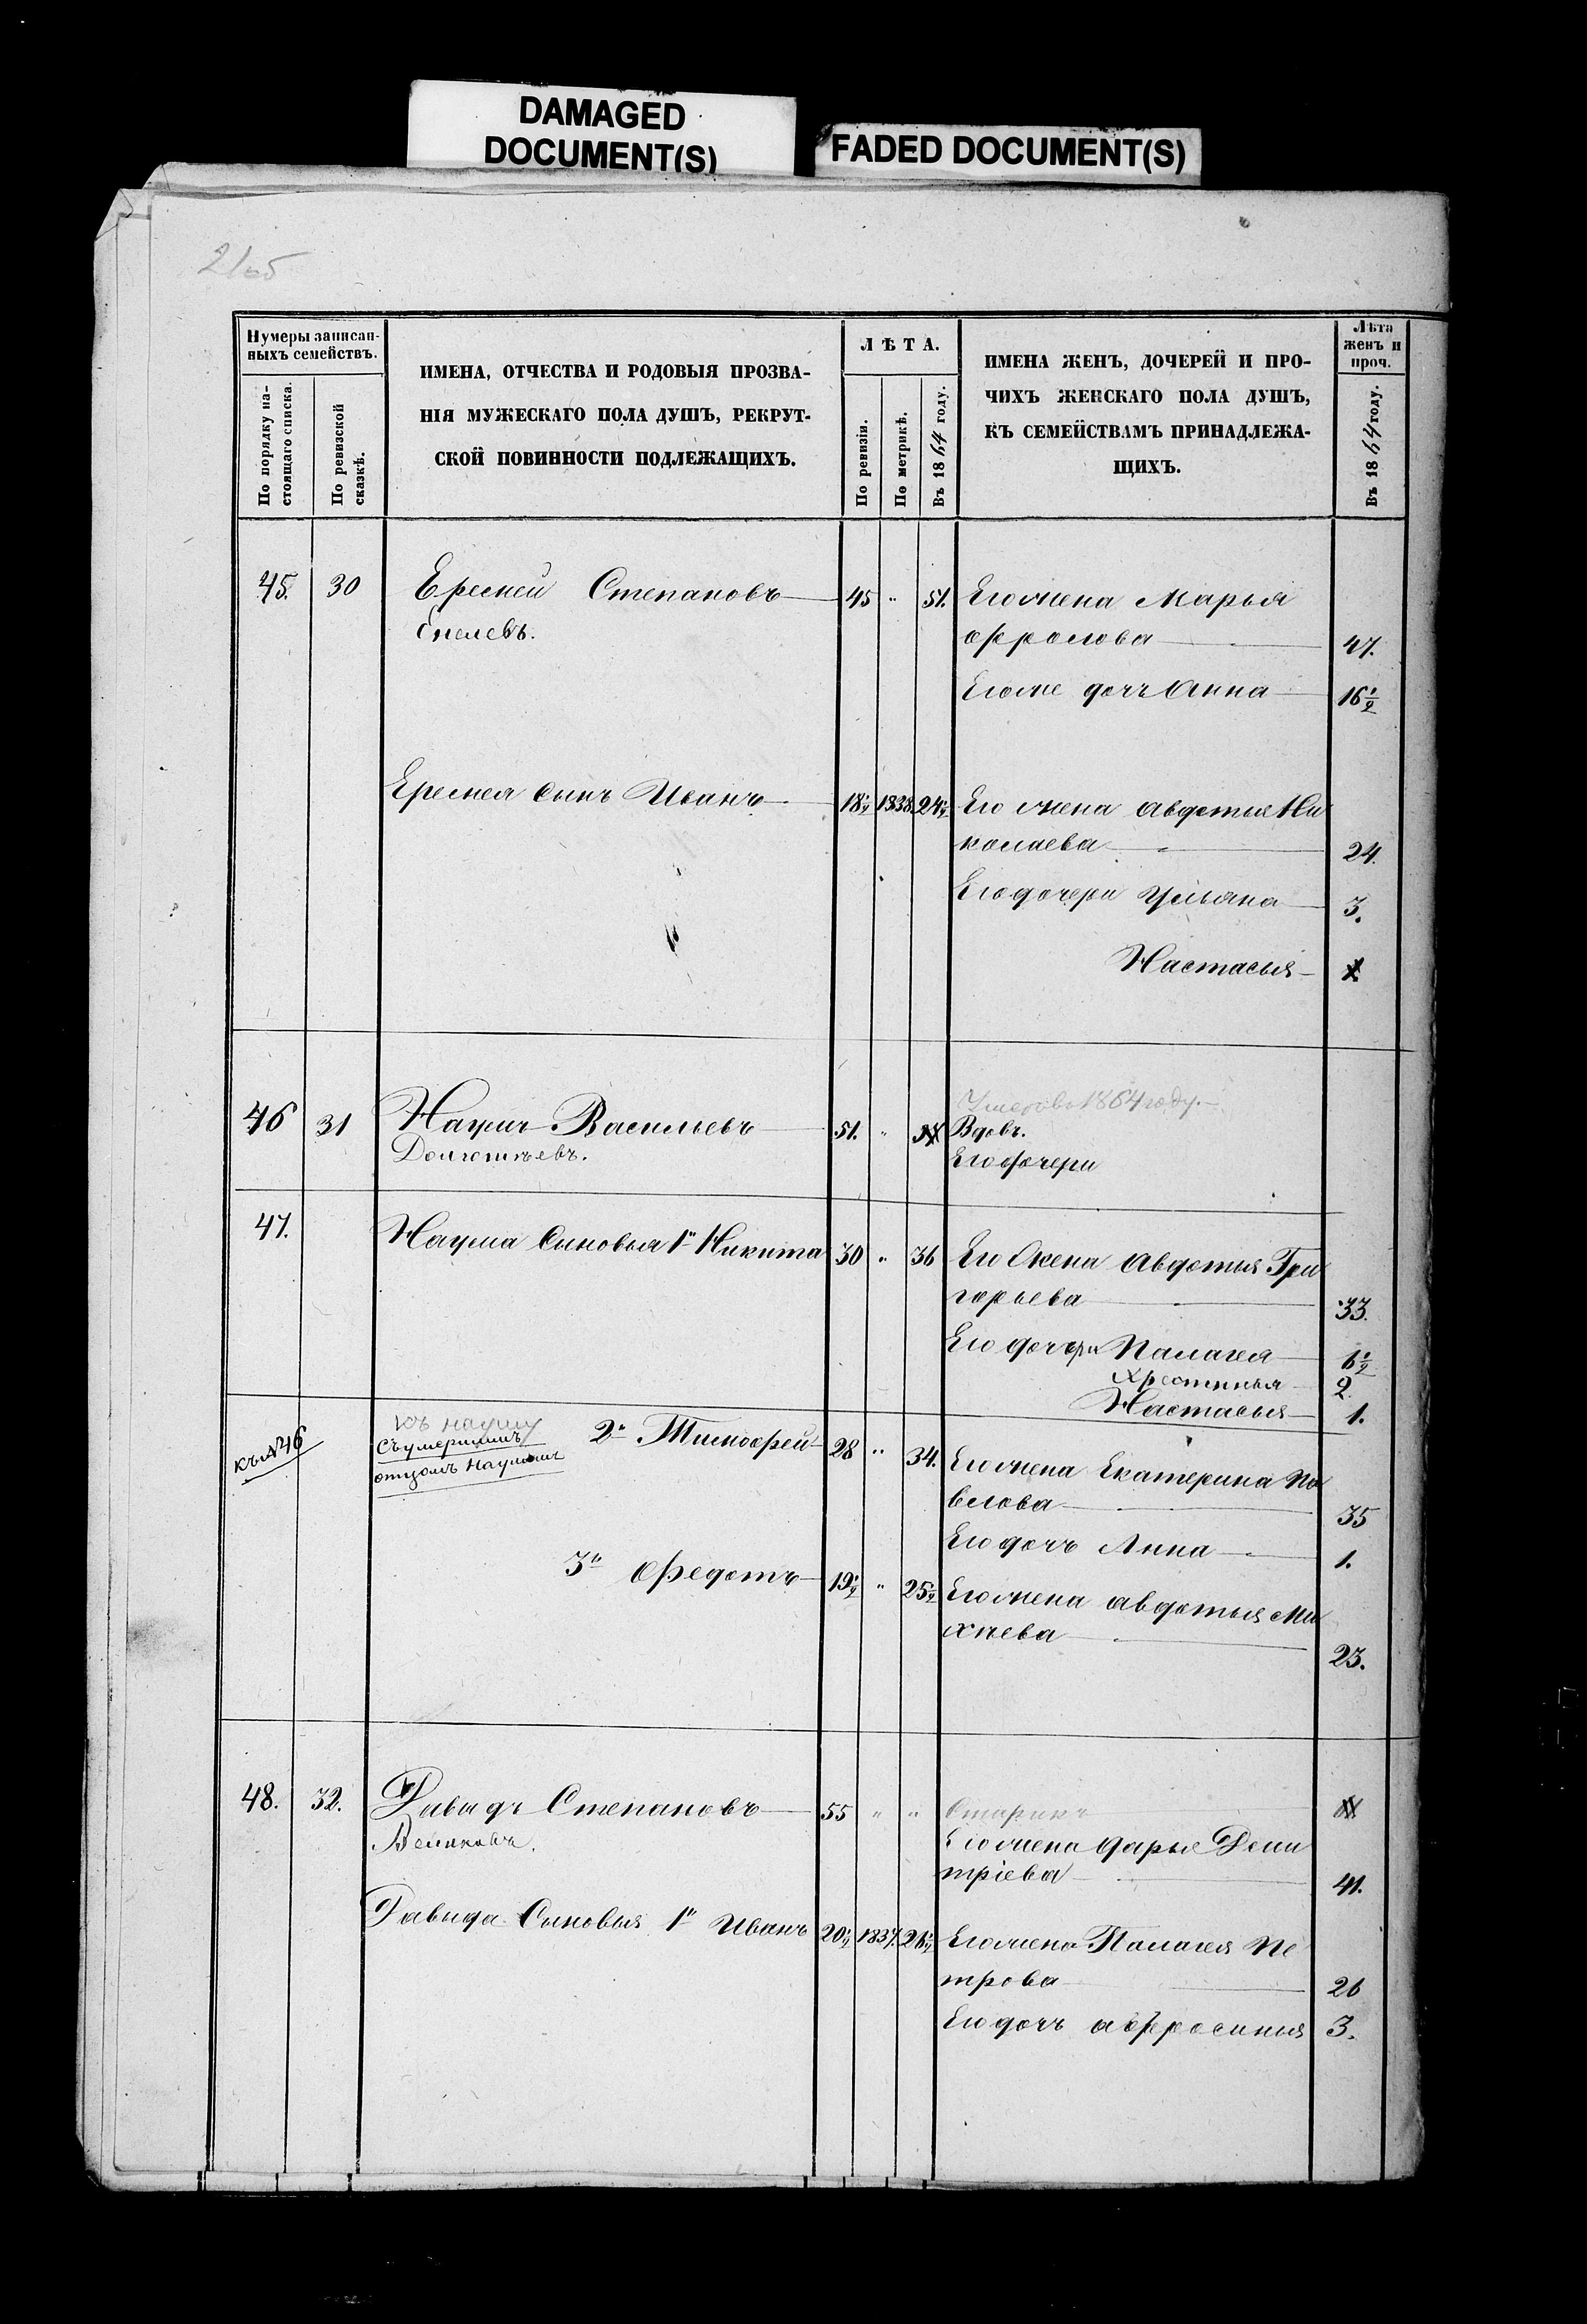 DAMAGED
DOCUMENT(S)
FADED DOCUMENT(S)
Нумеры записан-
ныхъ семействъ.
По порядку на-
стоящаго списка.
По ревизской
сказкѣ.
ИМЕНА, ОТЧЕСТВА И РОДОВЫЯ ПРОЗВА-
НІЯ МУЖЕСКАГО ПОЛА ДУШЪ, РЕКРУТ-
СКОЙ ПОВИННОСТИ ПОДЛЕЖАЩИХЪ.
ЛѢТА.
По ревизіи.
По метрикѣ.
Въ 1864 году.
ИМЕНА ЖЕНЪ, ДОЧЕРЕЙ И ПРО-
ЧИХЪ ЖЕНСКАГО ПОЛА ДУШЪ,
КЪ СЕМЕЙСТВАМЪ ПРИНАДЛЕЖА-
ЩИХЪ.
Лѣта
женъ и
проч.
Въ 1864 году.
45. 30 Степановъ 45 " 51. Его жена Марья
Фролова 47.
Его же дочь Анна 16½
сынъ Иванъ 18½ 1838. 24½ Его жена Авдотья Ни
колаева 24.
Его дочери Ульяна 3.
Настасья
Умеръ въ 1864 году.
46 31 Наумъ Васильевъ 51. " Вдовъ.
Его дочери
47. Наума сыновья 1й Никита 30 " 36 Его жена Авдотья Гри
горьева 33.
Его дочери Палагея 6½
Хрестинья 2
Настасья 1.
къ №46 къ науму
съумершимъ
отцомъ Наумомъ
2й Тимофей 28 " 34. Его жена Екатерина Па
влова 35
Его дочь Анна 1.
3й Федотъ 19½ " 25½ Его жена Авдотья Ми
хѣева 23.
48. 32. Давыдъ Степановъ 55 " " Старикъ
Великовъ. Его жена Дарья Деми
тріева 41.
Давыда Сыновья 1й Иванъ 20½ 1837. 26½ Его жена Палагея Пе
трова 26
Его дочь Афросинья 3.